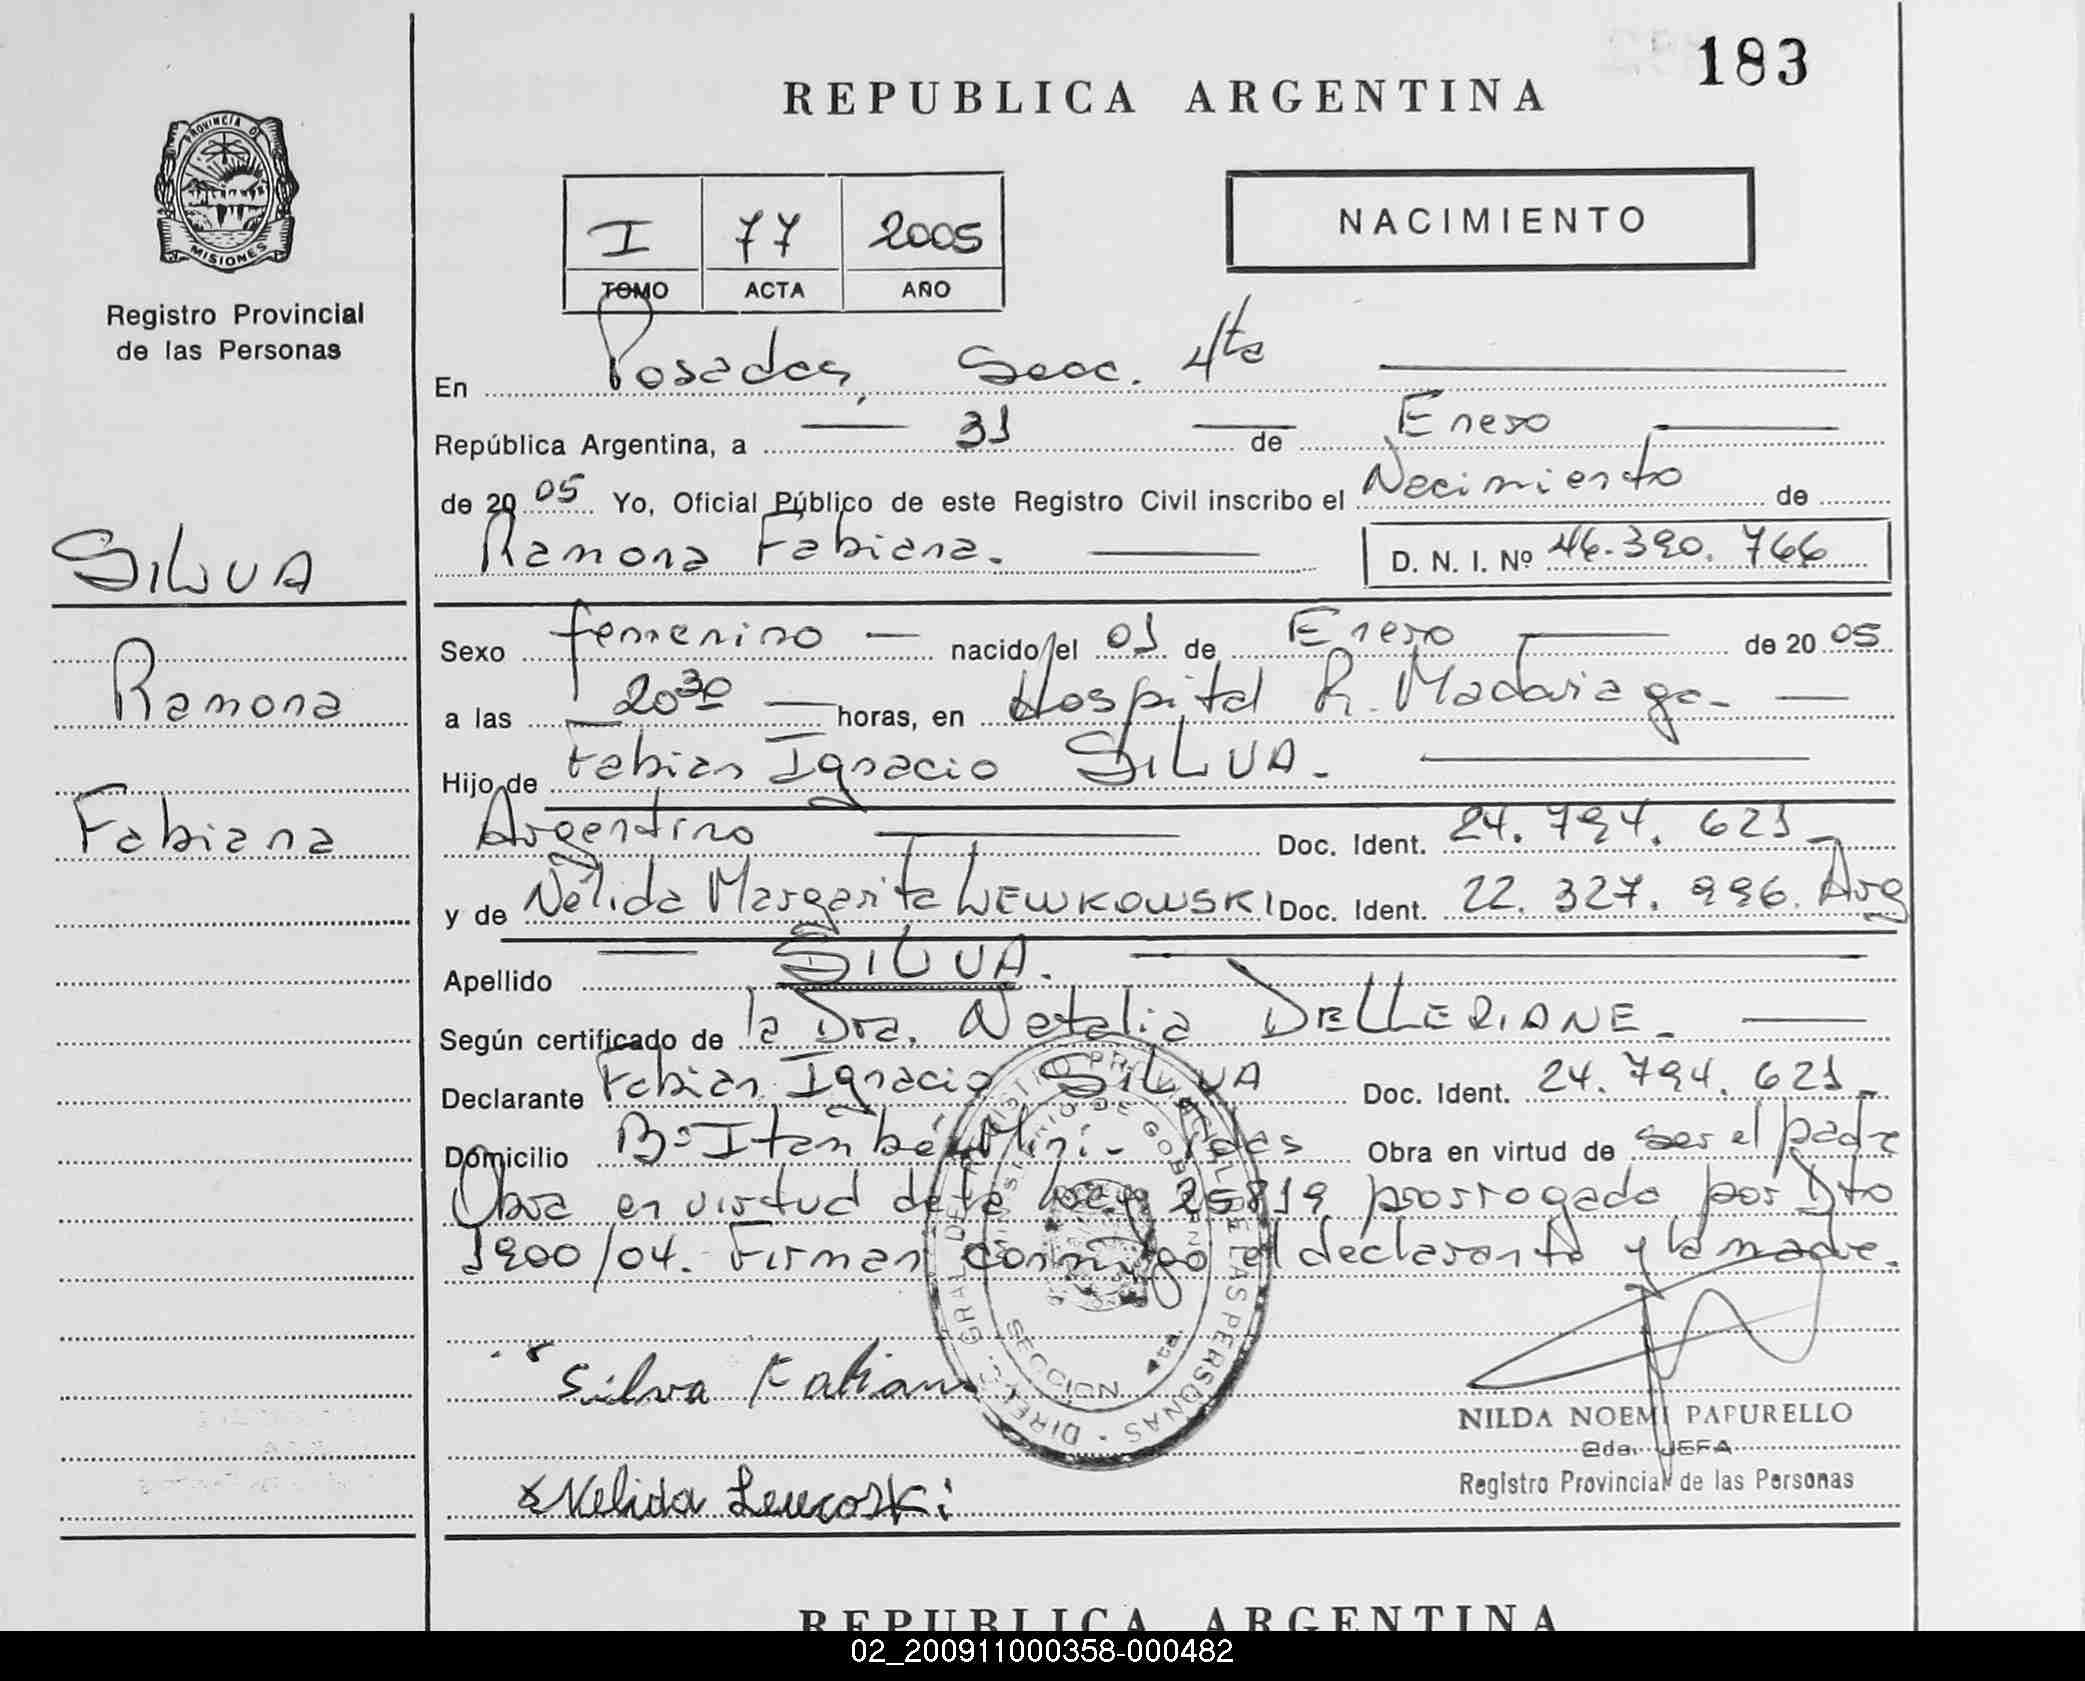 183
REPUBLICA ARGENTINA
PROVINCIA DE
MISIONES
Registro Provincial
de las Personas
I 77 2005
TOMO ACTA AÑO
NACIMIENTO
En Posadas, Secc. 4ta
República Argentina, a 31 de Enero
de 2005 Yo, Oficial Público de este Registro Civil inscribo el Nacimiento de
Ramona Fabiana. D. N. I. Nº 46.390.766
SILVA
Ramona
Fabiana
Sexo femenino nacido el 01 de Enero de 2005
a las 20 30 horas, en Hospital R. Madariaga-
Hijo de Fabian Ignacio SILVA.
Argentino Doc. Ident. 24.794.621
y de Nélida Margarita LEWKOWSKI Doc. Ident. 22.327.996. Arg
Apellido SILVA.
Según certificado de la Dra. Natalia DELLERIANE-
Declarante Fabian Ignacio SILVA Doc. Ident. 24.794.621-
Domicilio Bº Itambé Miní- Pdas Obra en virtud de ser el padre
Obra en virtud de la Ley 25819 prorrogado por Dto
1900/04. Firman conmigo el declarante y la madre.
DIREC. GRAL. DE REGISTRO PROVINCIAL DE LAS PERSONAS
MINISTERIO DE GOBIERNO
SECCION 4ta.
Silva Fabian
NILDA NOEMI PAPURELLO
2da. JEFA
Registro Provincial de las Personas
x Nelida Leucoski
REPUBLICA ARGENTINA
02_200911000358-000482